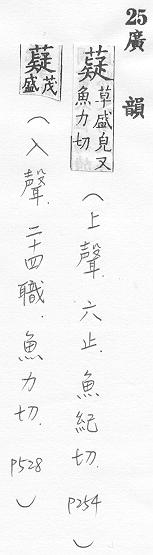 25廣韻
薿草盛皃又魚力切（上聲.六止.魚紀切.P254）
薿茂盛（入聲.二十四職.魚力切.P528）